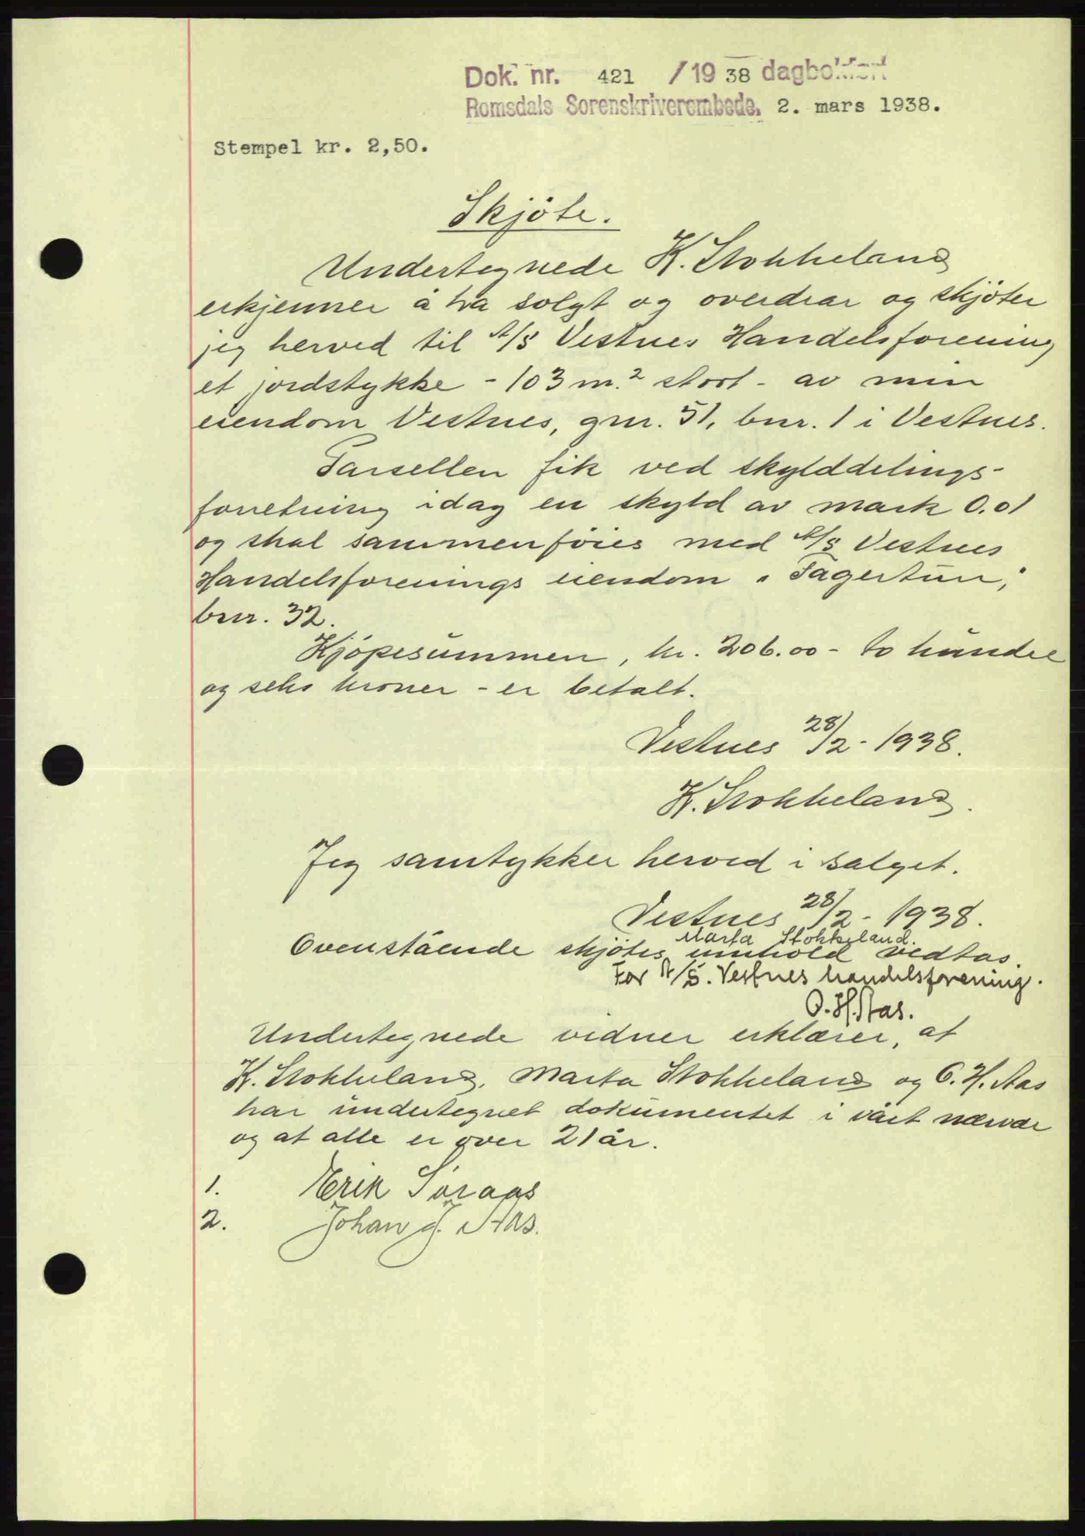 Dok. nr. 421 /1938 dagbokført
Romsdals Sorenskriverembede, 2. mars 1938.
Stempel kr. 2,50.
Skjöte.
Undertegnede K. Stokkeland
erkjenner å ha solgt og overdrar og skjöter
jeg herved til A/S Vestnes Handelsforening
et jordstykke - 103 m.² stort - av min
eiendom Vestnes, gnr. 51, bnr. 1 i Vestnes.
Parsellen fik ved skylddelings-
forretning idag en skyld av mark 0.01
og skal sammenföies med A/S Vestnes
Handelsforenings eiendom "Fagertun,"
bnr. 32.
Kjöpesummen, kr. 206.00 - to hundre
og seks kroner - er betalt.
Vestnes 28/2 - 1938.
K. Stokkeland.
Jeg samtykker herved i salget.
Vestnes 28/2 - 1938.
Marta Stokkeland.
Ovenstående skjötes innhold vedtas.
For A/S. Vestnes handelsforening.
O. H. Aas.
Undertegnede vidner erklærer, at
K. Stokkeland, Marta Stokkeland og O. H. Aas
har undertegnet dokumentet i vårt nærvær
og at alle er over 21 år.
1. Erik Soraas
2. Johan J. Aas.